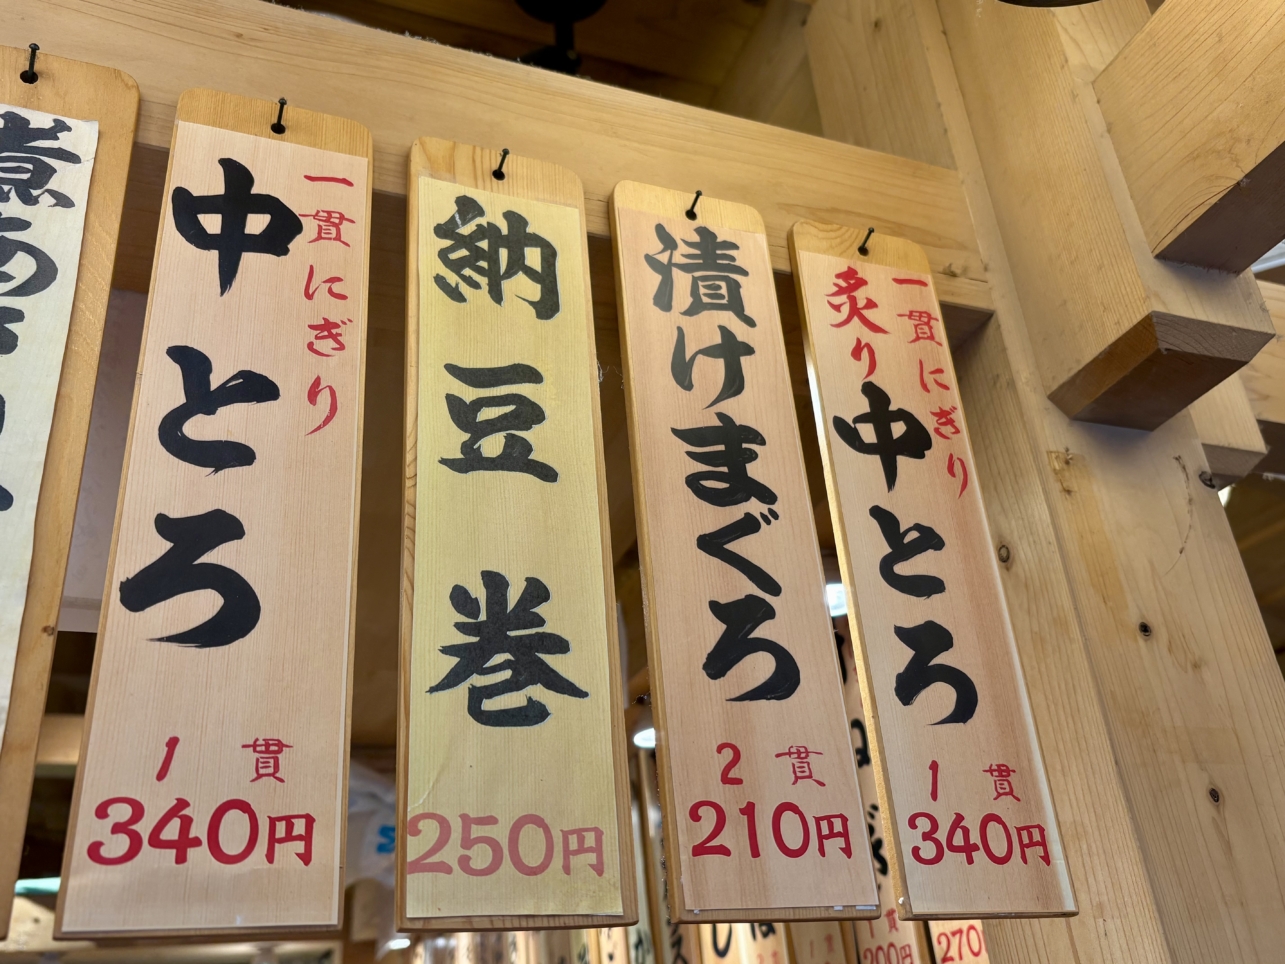 煮あ
中とろ
一貫にぎり
1貫
340円
納豆巻
250円
漬けまぐろ
2貫
210円
一貫にぎり
炙り中とろ
1貫
340円
1貫
200円
270